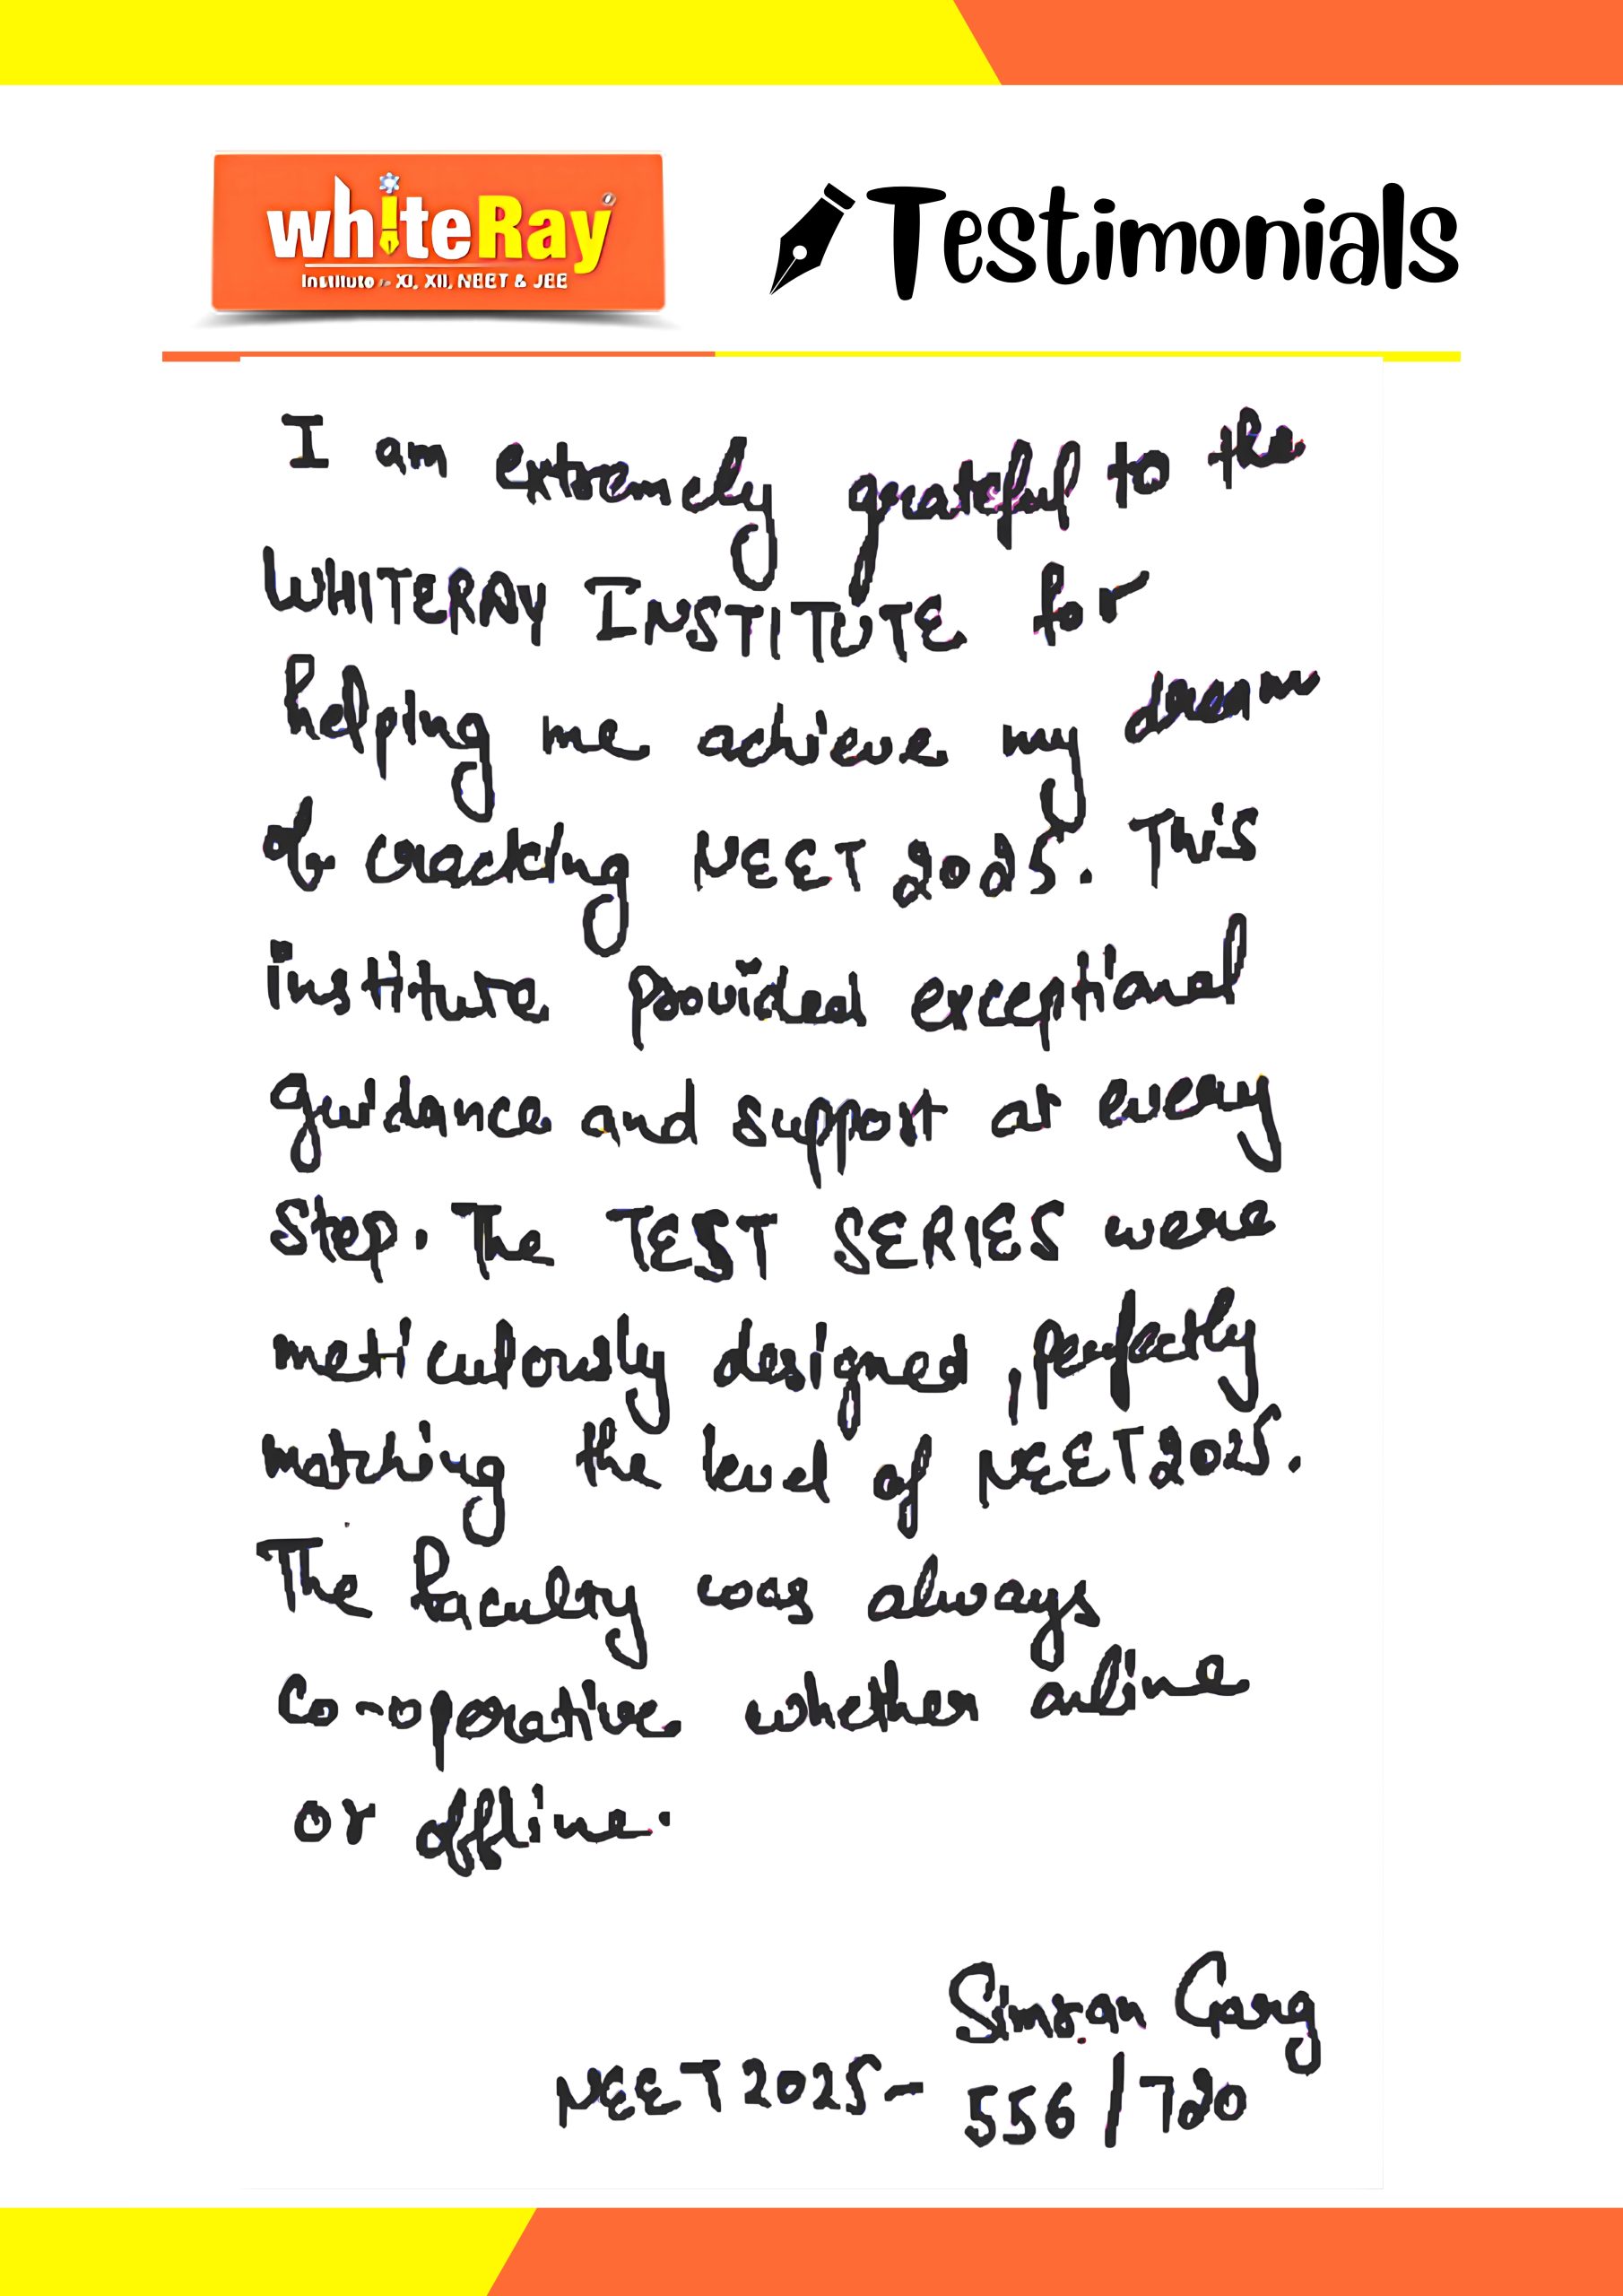 whiteRay
Institute - XI, XII, NEET & JEE
Testimonials
I am extremely grateful to the
WHITERAY INSTITUTE for
helping me achieve my dream
of cracking NEET 2025. This
institute provided exceptional
guidance and support at every
step. The TEST SERIES were
meticulously designed, perfectly
matching the level of NEET2025.
The faculty was always
co-operative whether online
or offline.
Simran Garg
NEET2025- 556/720